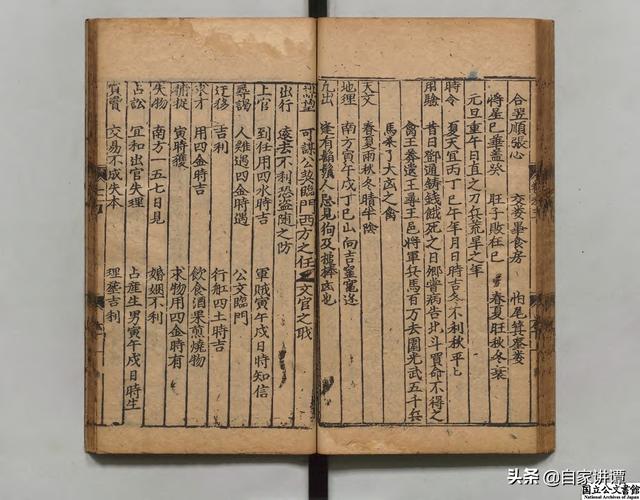 合翌順張心 交婁畢食房 怕尾箕參婁
將星巳垂盖癸 旺子敗在巳 春夏旺秋冬衰
元旦重午日直之刀兵荒旱之年
時令 夏天宜丙丁巳午年月日時吉冬不利秋平
用驗 昔日鄧通鋳錢餓死之日鄉嘗病告北斗買命不得之
禽王莽遷王尋王邑將軍兵馬百万去圍光武五千兵
馬來了大凶之禽
天文 春夏雨秋冬晴半陰
地理 南方寅午戌丁巳山向吉
九出 逢有鬍鬚人忌見狗及
可謀公契臨門西方之任 文官之職
出行 遠去不利恐盗隨之防
上官 到任用四水時吉 軍賊寅午戌日時知信
尋謁 人難遇四金時遇 公文臨門
迁移 吉利 行舡四土時吉
求才 用四金時吉 飲食酒果煎燒物
捕捉 寅時獲 求物用四金時有
失物 南方一五七日見 婚姻不利
占訟 宜和出官失理 占產生男寅午戌日時生
買賣 交易不成失本 埋葬吉利
头条 @自家讲谭
国立公文書館
National Archives of Japan